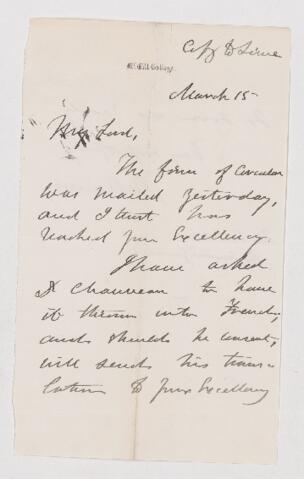 Copy to Lorne
McGill College.
March 15
My Lord,
The form of Circular
was mailed yesterday,
and I trust has
reached your Excellency.
I have asked
Dr Chauveau to have
it thrown into French,
and should he consent,
will send his trans-
lation to your Excellency